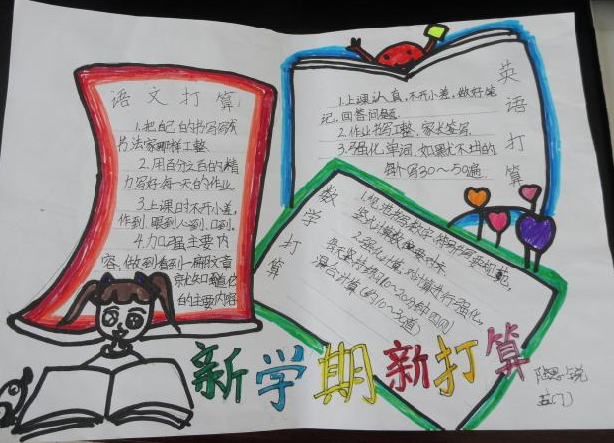 语文打算:
1.把自己的书写写成
书法家那样工整
2.用百分之百的精
力写好每一天的作业
3.上课时不开小差,
作到眼到心到、口到。
4.加强主要内
容,做到看到一篇文章
就知道它
的主要内容
英语打算
1.上课认真,不开小差,做好笔
记,回答问题.
2.作业书写工整,家长签写
3.强化单词.如默不出的
错一补写30～50遍
数学打算
2.强化计算,对计算进行强化,
每天坚持练10～20分钟四则
混合计算(约10～30道)
新学期新打算